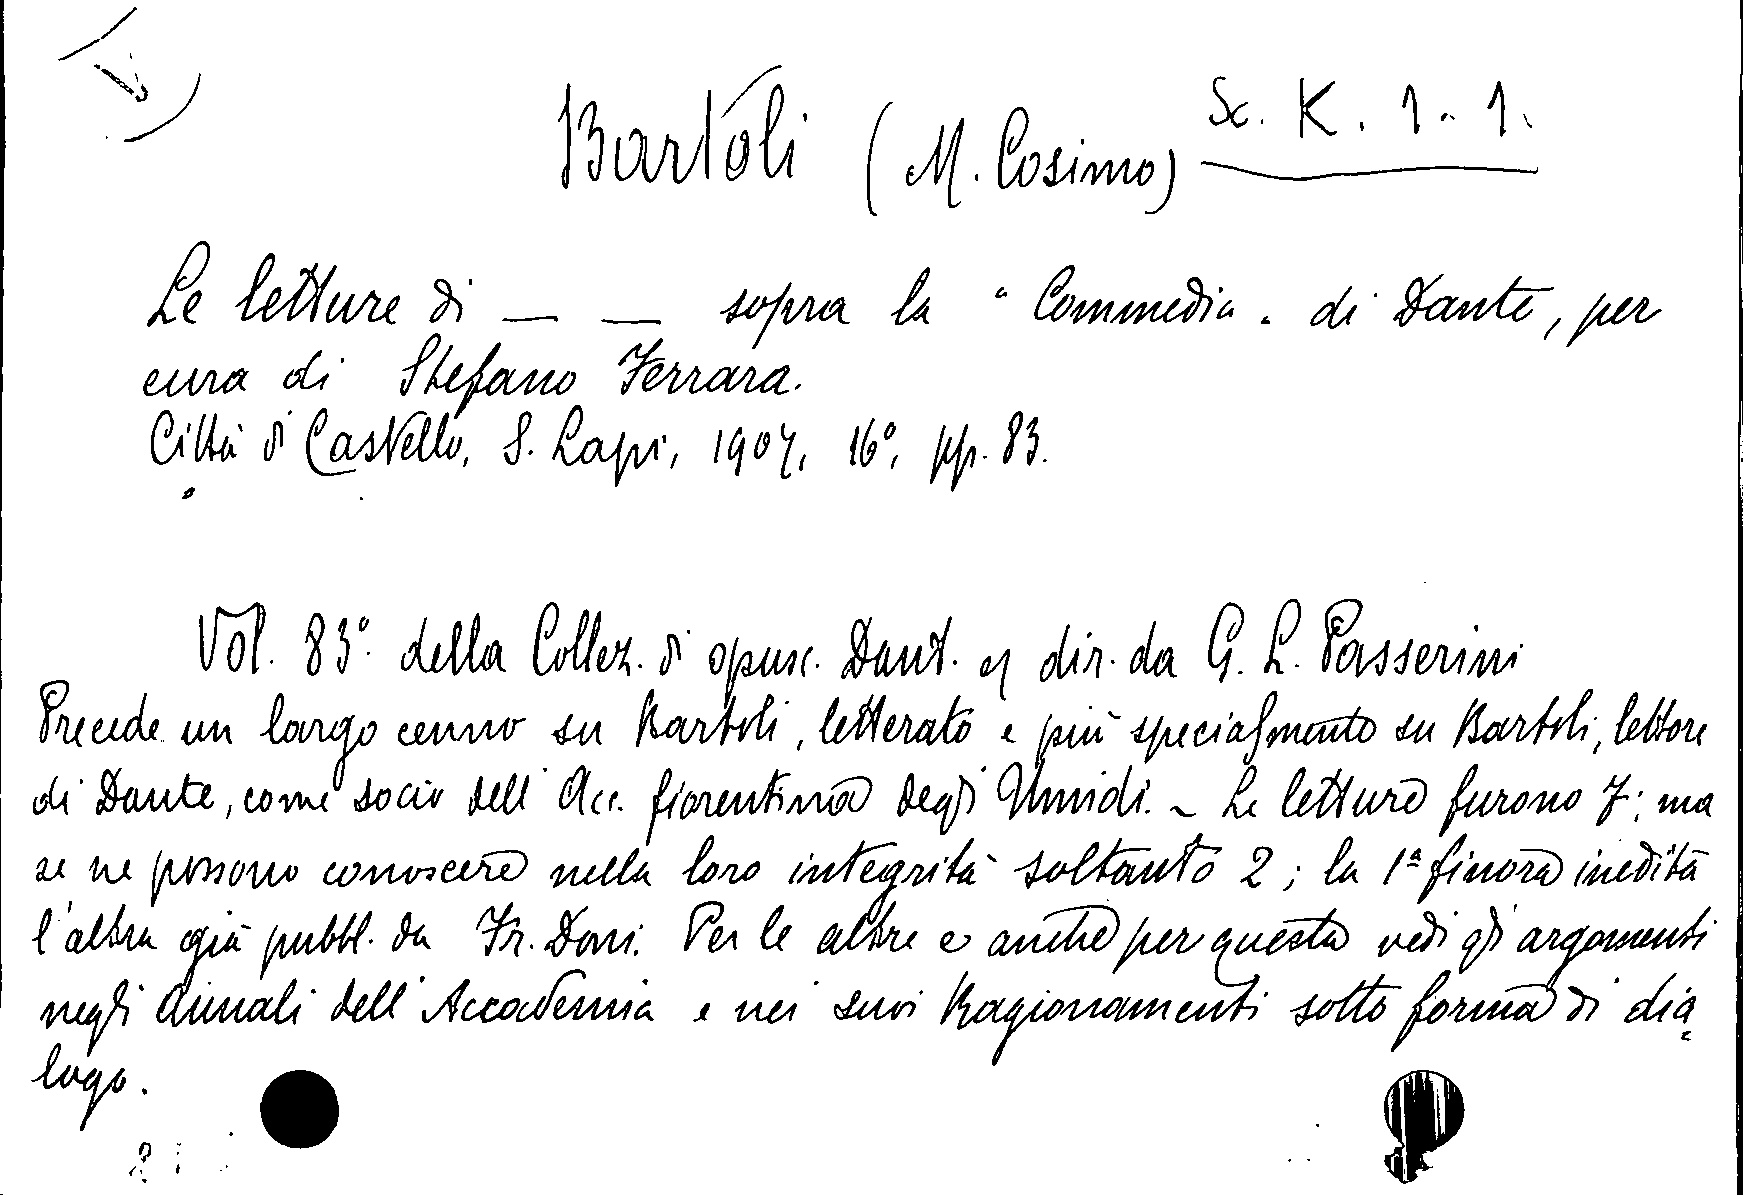 Bartoli (M. Cosimo) Sc. K. 1. 1.
Le letture di — — sopra la "Commedia" di Dante, per
cura di Stefano Ferrara.
Città di Castello, S. Lapi, 1907, 16°, pp. 83.
Vol. 83° della Collez. di opusc. Dant. dir. da G. L. Passerini
Precede un largo cenno su Bartoli, letterato e più specialmente su Bartoli, lettore
di Dante, come socio dell'Acc. fiorentina degli Umidi. - Le letture furono 7; ma
se ne possono conoscere nella loro integrità soltanto 2; la 1ª finora inedita
l'altra già pubbl. da Fr. Doni. Per le altre e anche per questa vedi gli argomenti
negli Annali dell'Accademia e nei suoi Ragionamenti sotto forma di dia
logo.